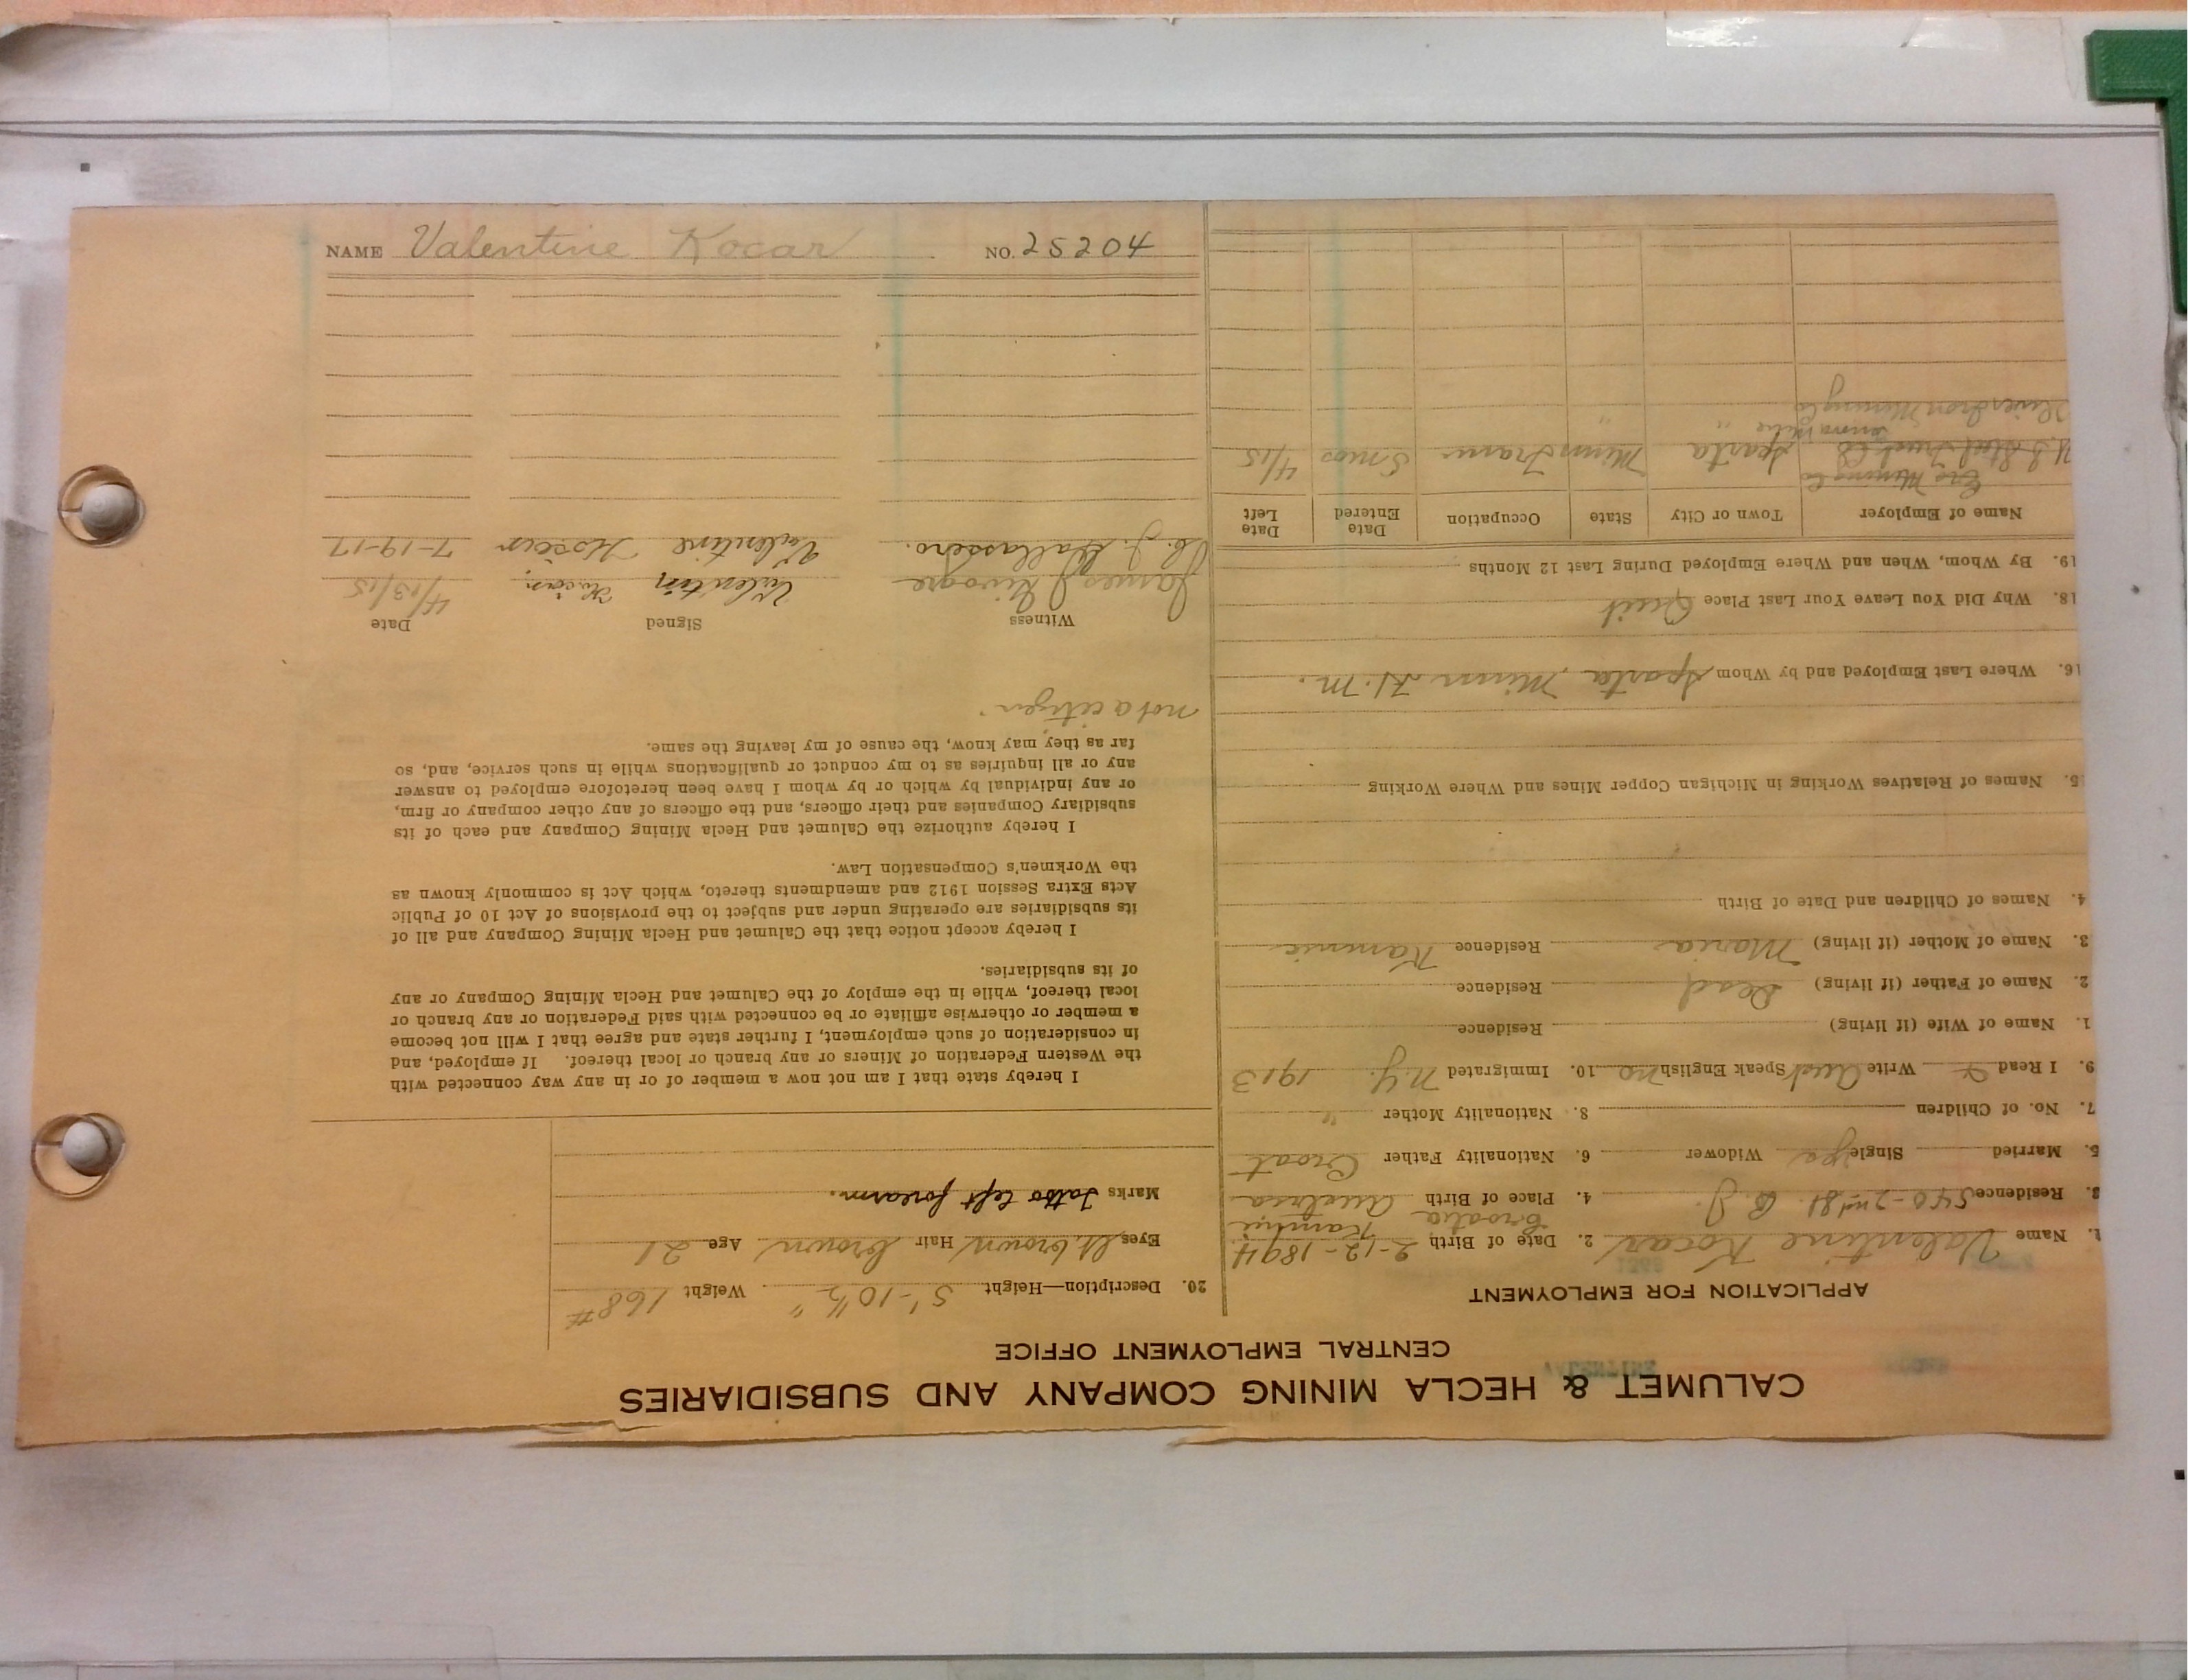 CALUMET & HECLA MINING COMPANY AND SUBSIDIARIES
CENTRAL EMPLOYMENT OFFICE
APPLICATION FOR EMPLOYMENT
1. Name Valentine Kocar 2. Date of Birth 2-12-1894
Croatia
3. Residence 540-2nd St. 4. Place of Birth Austria
5. Married Single yes Widower 6. Nationality Father Croat
7. No. of Children 8. Nationality Mother "
9. I Read & Write Aust Speak English no 10. Immigrated N.Y. 1913
1. Name of Wife (if living) Residence
2. Name of Father (if living) Dead Residence
3. Name of Mother (if living) Maria Residence
4. Names of Children and Date of Birth
5. Names of Relatives Working in Michigan Copper Mines and Where Working
16. Where Last Employed and by Whom Sparta, Minn.
18. Why Did You Leave Your Last Place Quit
19. By Whom, When and Where Employed During Last 12 Months
Name of Employer Town or City State Occupation Date Entered Date Left
Mining Co
U.S. Steel Sparta Minn Tram 5 mos 4/15
Iron Mining Co " "
20. Description—Height 5'-10 1/2" Weight 168#
Eyes lt. brown Hair brown Age 21
Marks Tatto left forearm.
I hereby state that I am not now a member of or in any way connected with
the Western Federation of Miners or any branch or local thereof. If employed, and
in consideration of such employment, I further state and agree that I will not become
a member or otherwise affiliate or be connected with said Federation or any branch or
local thereof, while in the employ of the Calumet and Hecla Mining Company or any
of its subsidiaries.
I hereby accept notice that the Calumet and Hecla Mining Company and all of
its subsidiaries are operating under and subject to the provisions of Act 10 of Public
Acts Extra Session 1912 and amendments thereto, which Act is commonly known as
the Workmen's Compensation Law.
I hereby authorize the Calumet and Hecla Mining Company and each of its
subsidiary Companies and their officers, and the officers of any other company or firm,
or any individual by which or by whom I have been heretofore employed to answer
any or all inquiries as to my conduct or qualifications while in such service, and, so
far as they may know, the cause of my leaving the same.
not a citizen.
Witness Signed Date
James Valentin 4/13/15
Valentine 7-19-17
NAME Valentine Kocar NO. 25204